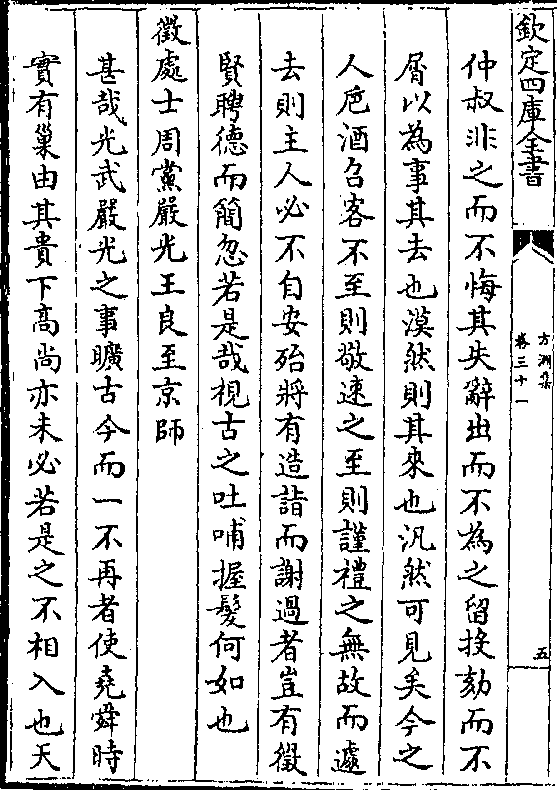 欽定四庫全書
方洲集
卷三十一
五
仲叔非之而不悔其失辭出而不為之留投劾而不
屑以為事其去也漠然則其來也汎然可見矣今之
人巵酒召客不至則敬速之至則謹禮之無故而遽
去則主人必不自安殆將有造詣而謝過者豈有徵
賢聘德而簡忽若是哉視古之吐哺握髮何如也
徵處士周黨嚴光王良至京師
甚哉光武嚴光之事曠古今而一不再者使堯舜時
實有巢由其貴下高尚亦未必若是之不相入也天